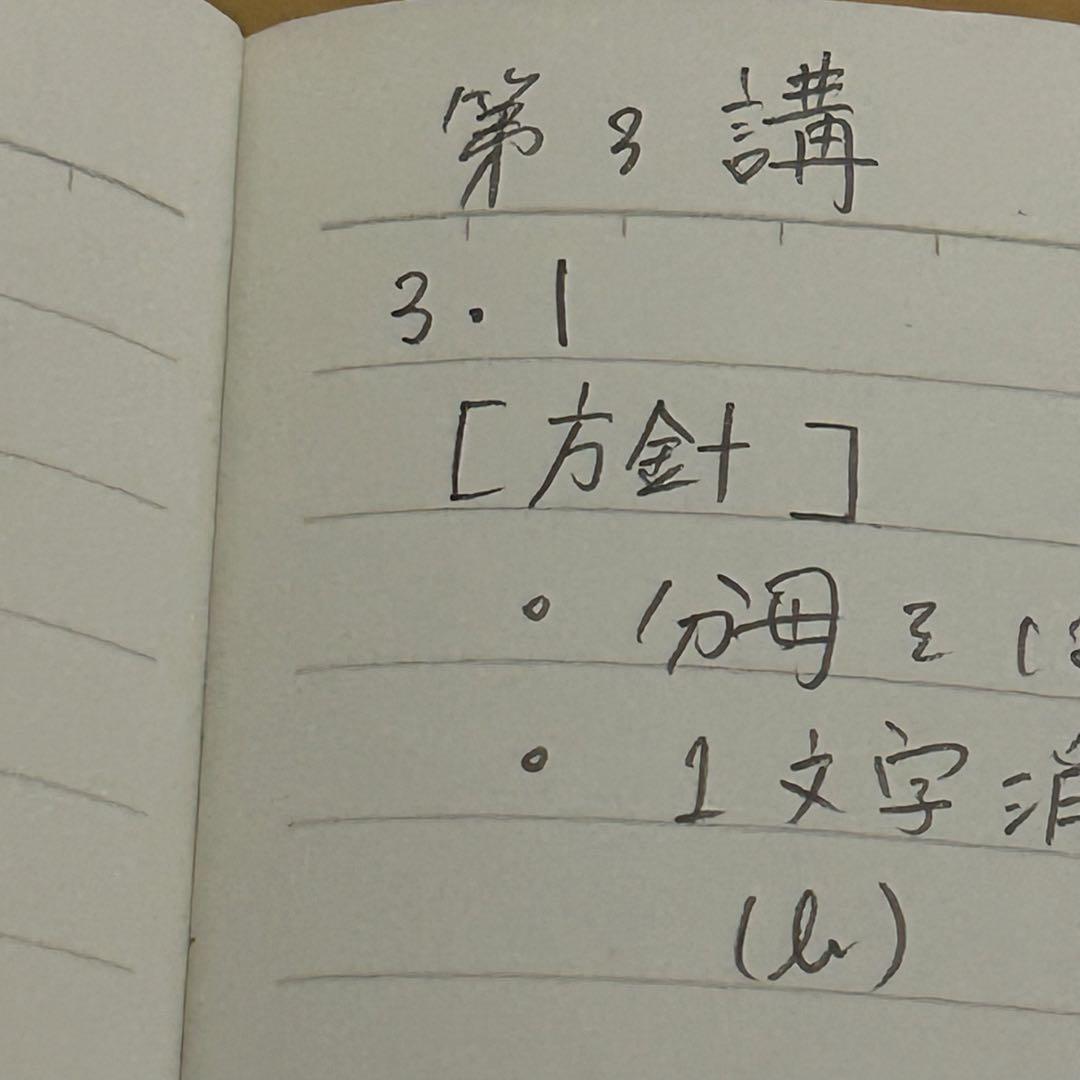 第3講
3・1
[方針]
・分母を
・1文字消
(b)